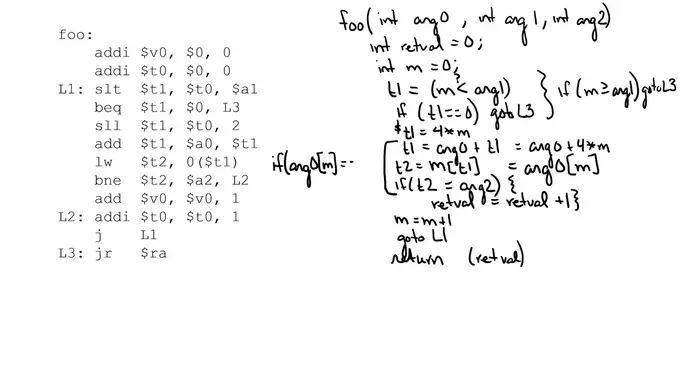 foo:
addi $v0, $0, 0
addi $t0, $0, 0
L1: slt $t1, $t0, $a1
beq $t1, $0, L3
sll $t1, $t0, 2
add $t1, $a0, $t1
lw $t2, 0($t1)
bne $t2, $a2, L2
add $v0, $v0, 1
L2: addi $t0, $t0, 1
j L1
L3: jr $ra
foo(int arg0, int arg1, int arg2)
int retval = 0;
int m = 0;
t1 = (m < arg1)
if (t1 == 0) goto L3
if (m ≥ arg1) goto L3
t1 = 4*m
t1 = arg0 + t1 = arg0 + 4*m
t2 = m[t1] = arg0[m]
if (arg0[m] = -
if (t2 = arg2) {
retval = retval + 1}
m = m+1
goto L1
return (retval)